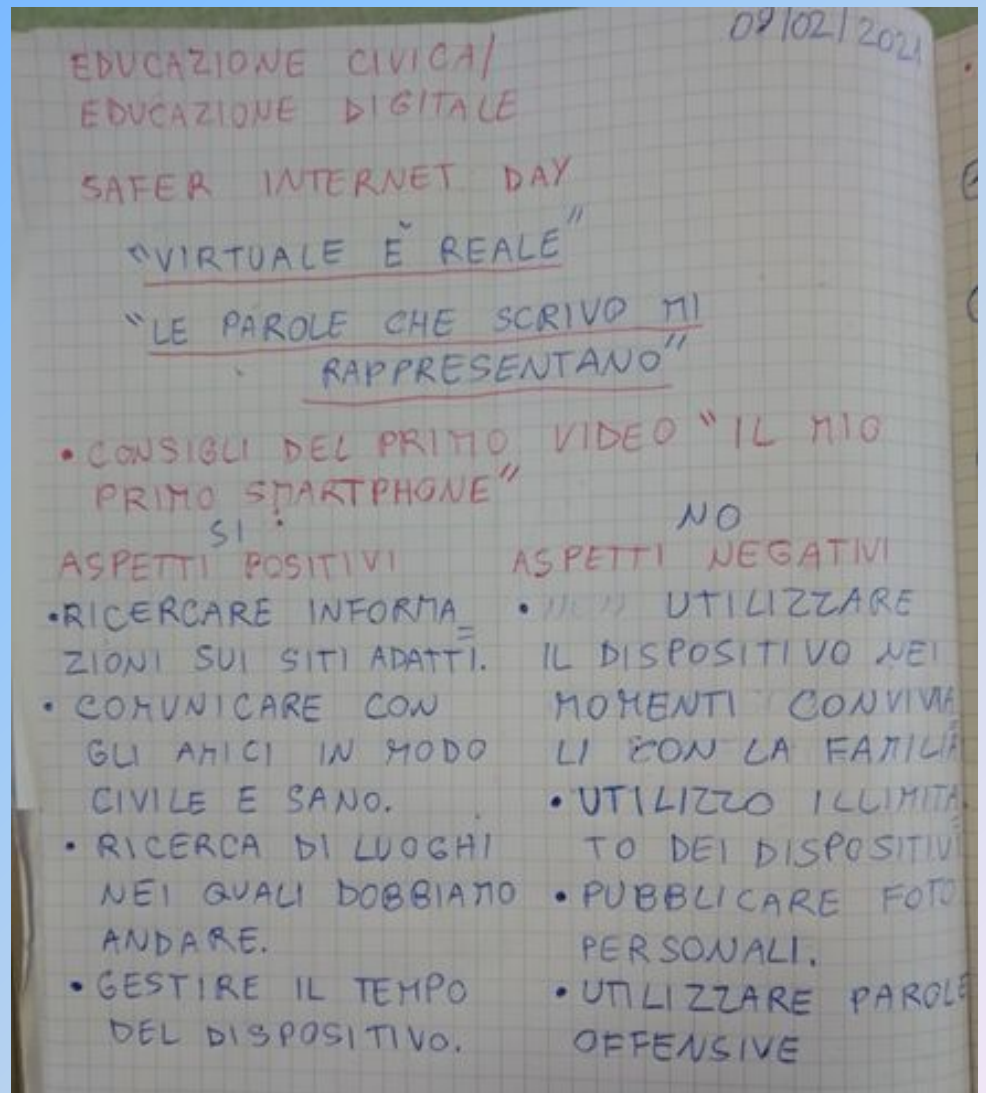 09/02/2021
EDUCAZIONE CIVICA/
EDUCAZIONE DIGITALE
SAFER INTERNET DAY
"VIRTUALE È REALE"
"LE PAROLE CHE SCRIVO MI
RAPPRESENTANO"
• CONSIGLI DEL PRIMO VIDEO "IL MIO
PRIMO SMARTPHONE" :
SI
ASPETTI POSITIVI
• RICERCARE INFORMA=
ZIONI SUI SITI ADATTI.
• COMUNICARE CON
GLI AMICI IN MODO
CIVILE E SANO.
• RICERCA DI LUOGHI
NEI QUALI DOBBIAMO
ANDARE.
• GESTIRE IL TEMPO
DEL DISPOSITIVO.
NO
ASPETTI NEGATIVI
• UTILIZZARE
IL DISPOSITIVO NEI
MOMENTI CONVIVIA=
LI CON LA FAMILIA
• UTILIZZO ILLIMITA=
TO DEI DISPOSITIVI
• PUBBLICARE FOTO
PERSONALI.
• UTILIZZARE PAROLE
OFFENSIVE